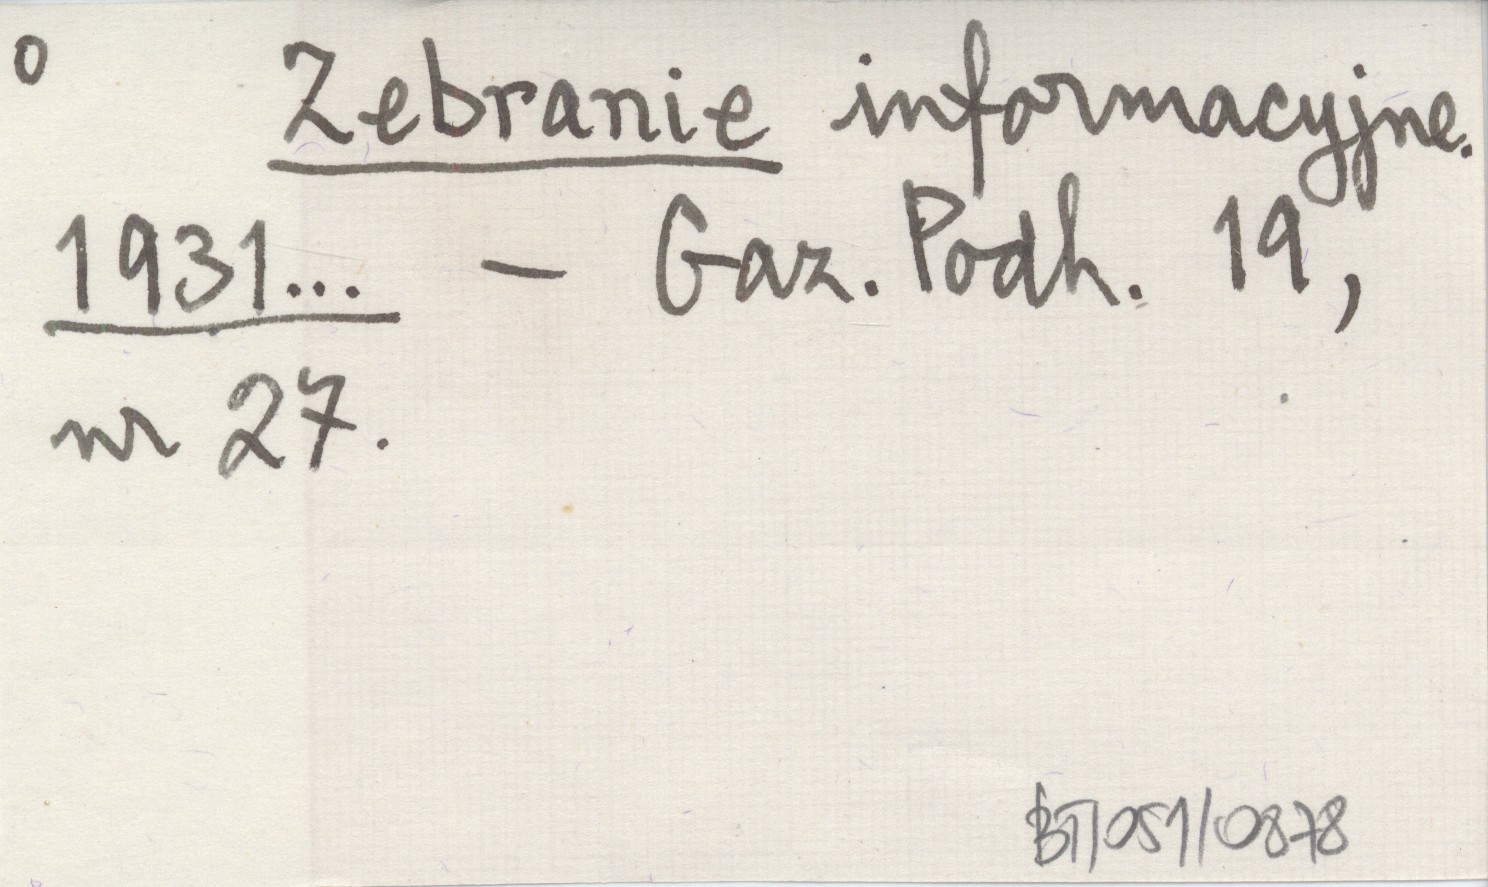 o Zebranie informacyjne.
1931... – Gaz. Podh. 19,
nr 27.
BT/051/0878